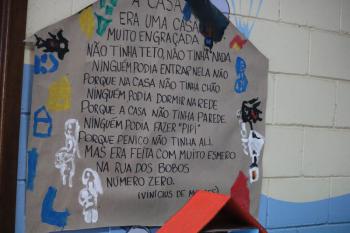 A CASA
ERA UMA CASA
MUITO ENGRAÇADA
NÃO TINHA TETO, NÃO TINHA NADA
NINGUÉM PODIA ENTRAR NELA NÃO
PORQUE NA CASA NÃO TINHA CHÃO
NINGUÉM PODIA DORMIR NA REDE
PORQUE A CASA NÃO TINHA PAREDE
NINGUÉM PODIA FAZER "PIPI"
PORQUE PENICO NÃO TINHA ALI.
MAS ERA FEITA COM MUITO ESMERO
NA RUA DOS BOBOS
NÚMERO ZERO.
(VINÍCIUS DE MORAES)